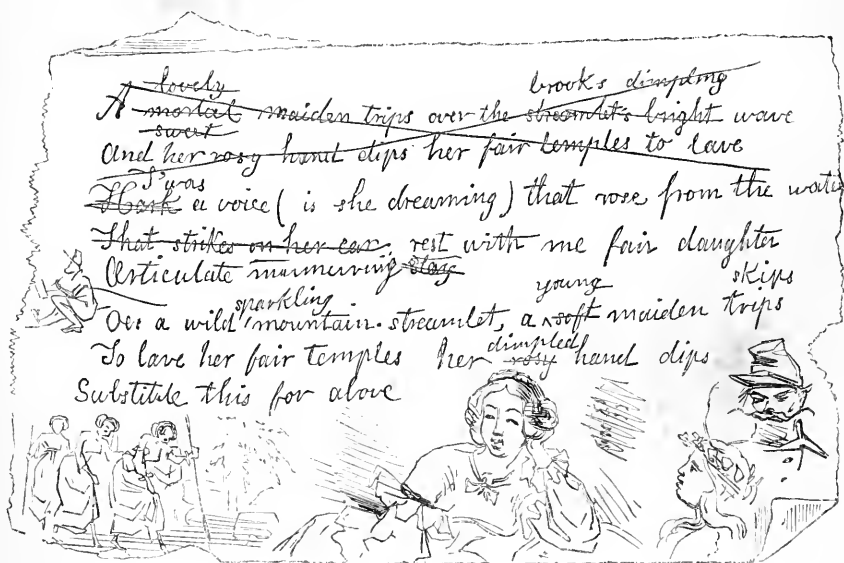 lovely brooks dimpling
A mortal maiden trips over the streamlet's bright wave
sweet
And her rosy hand dips her fair temples to lave
T'was
Hark a voice ( is she dreaming ) that rose from the
That strikes on her ear. rest with me fair daughter
Articulate murmuring stay
young skips
sparkling
Oer a wild mountain streamlet, a soft maiden trips
dimpled
To lave her fair temples her rosy hand dips
Substitute this for above